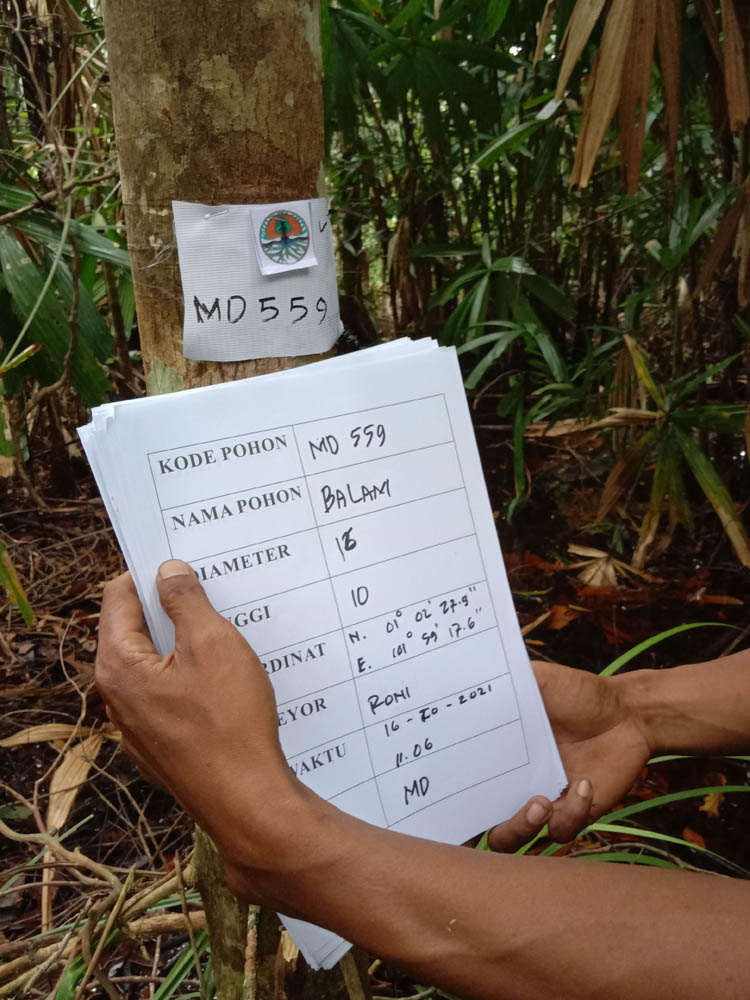 MD 559
KODE POHON MD 559
NAMA POHON BALAM
DIAMETER 15
NGGI 10
RDINAT N. 01° 02' 27.9"
E. 101° 59' 17.6"
EYOR RONI
WAKTU 16-10-2021
11.06
MD